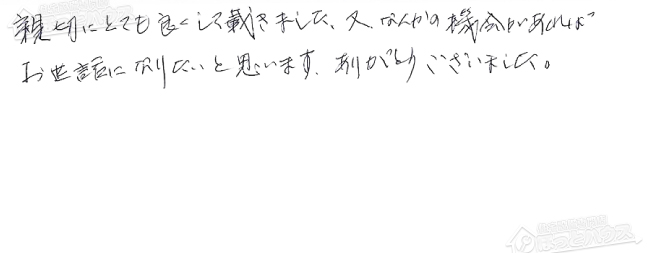 親切にとても良くして戴きました、又、なんかの機会があれば
お世話になりたいと思います、ありがとうございました。